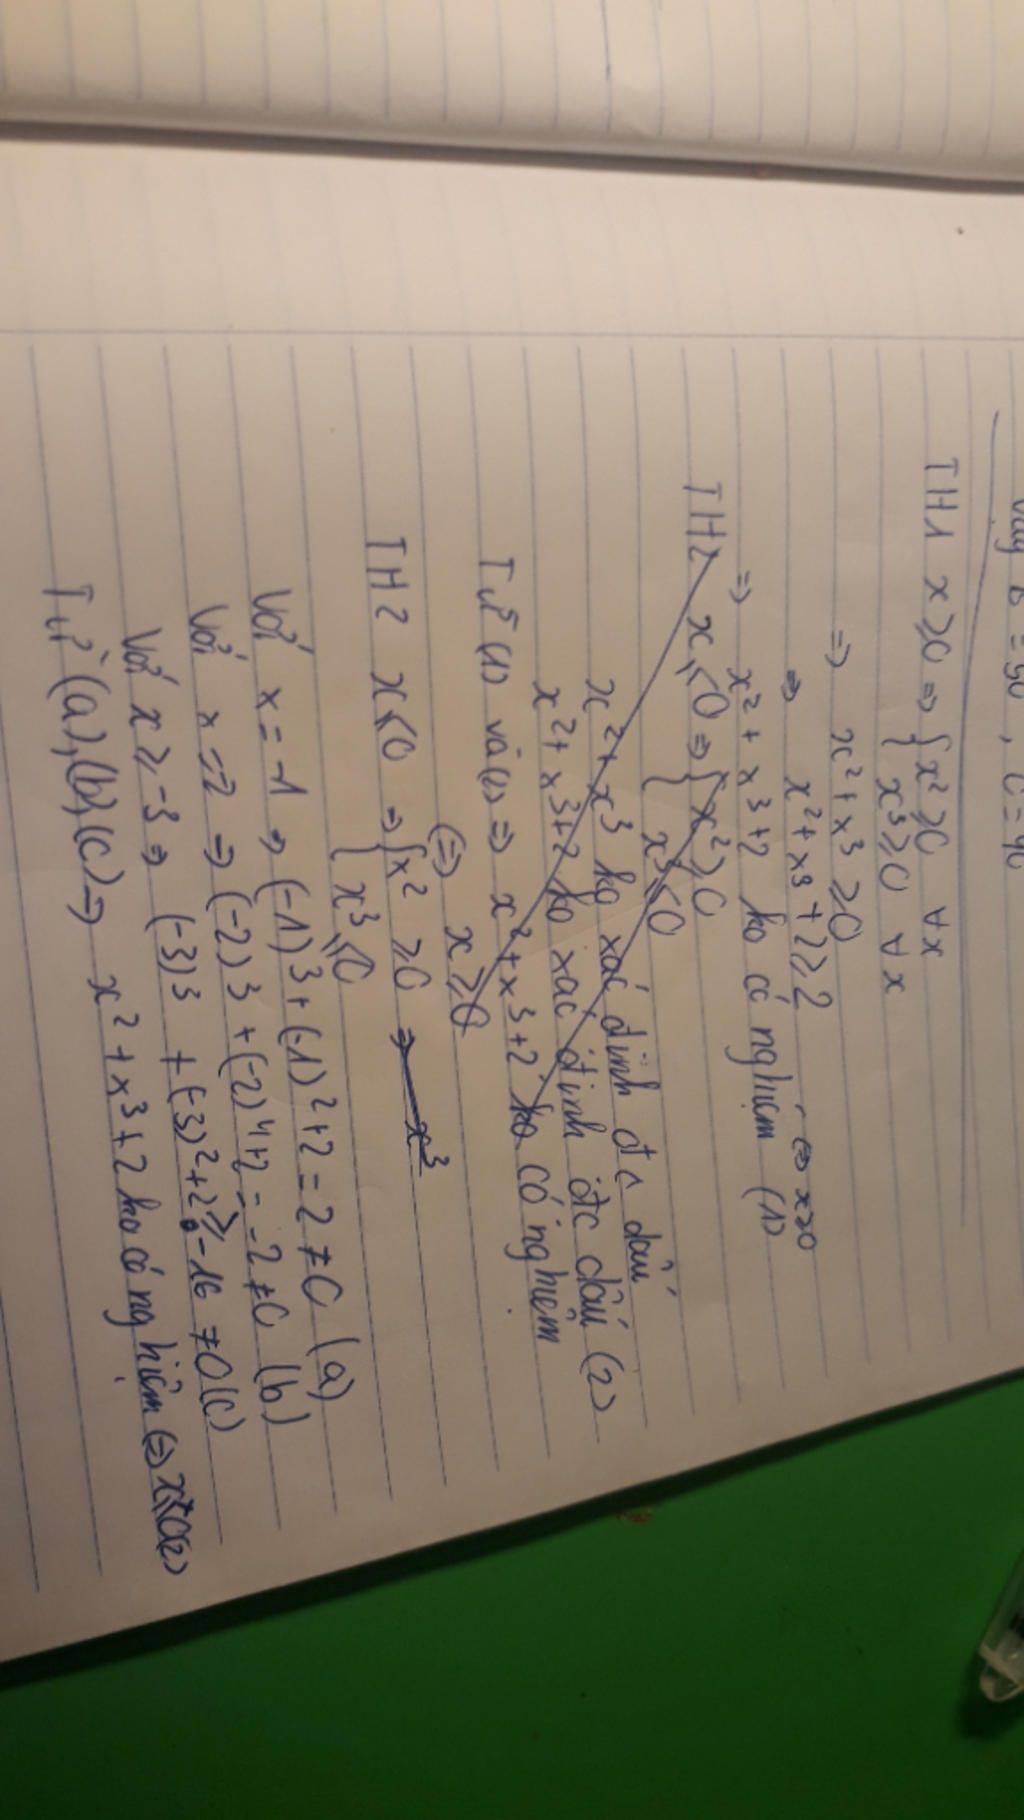 Vậy B = 50, C = 40
TH1 x ≥ 0 ⇒ { x² ≥ 0 ∀x
x³ ≥ 0 ∀x
⇒ x² + x³ ≥ 0
⇒ x² + x³ + 2 ≥ 2
⇒ x² + x³ + 2 ko có nghiệm (1) ⇔ x ≥ 0
TH2 x ≤ 0 ⇒ { x² ≥ 0
x³ ≤ 0
x² + x³ ko xác định đc dấu
x² + x³ + 2 ko xác định đc dấu (2)
Từ (1) và (2) ⇒ x² + x³ + 2 ko có nghiệm
⇔ x ≥ 0
TH2 x ≤ 0 ⇒ { x² ≥ 0 ⇒ x³
x³ ≤ 0
Với x = -1 ⇒ (-1)³ + (-1)² + 2 = 2 ≠ 0 (a)
Với x = -2 ⇒ (-2)3 + (-2)4 + 2 = -2 ≠ 0 (b)
Với x ≥ -3 ⇒ (-3)3 + (-3)² + 2 ≥ -16 ≠ 0 (c)
Từ (a), (b), (c) ⇒ x² + x³ + 2 ko có nghiệm ⇔ x ≤ 0 (2)